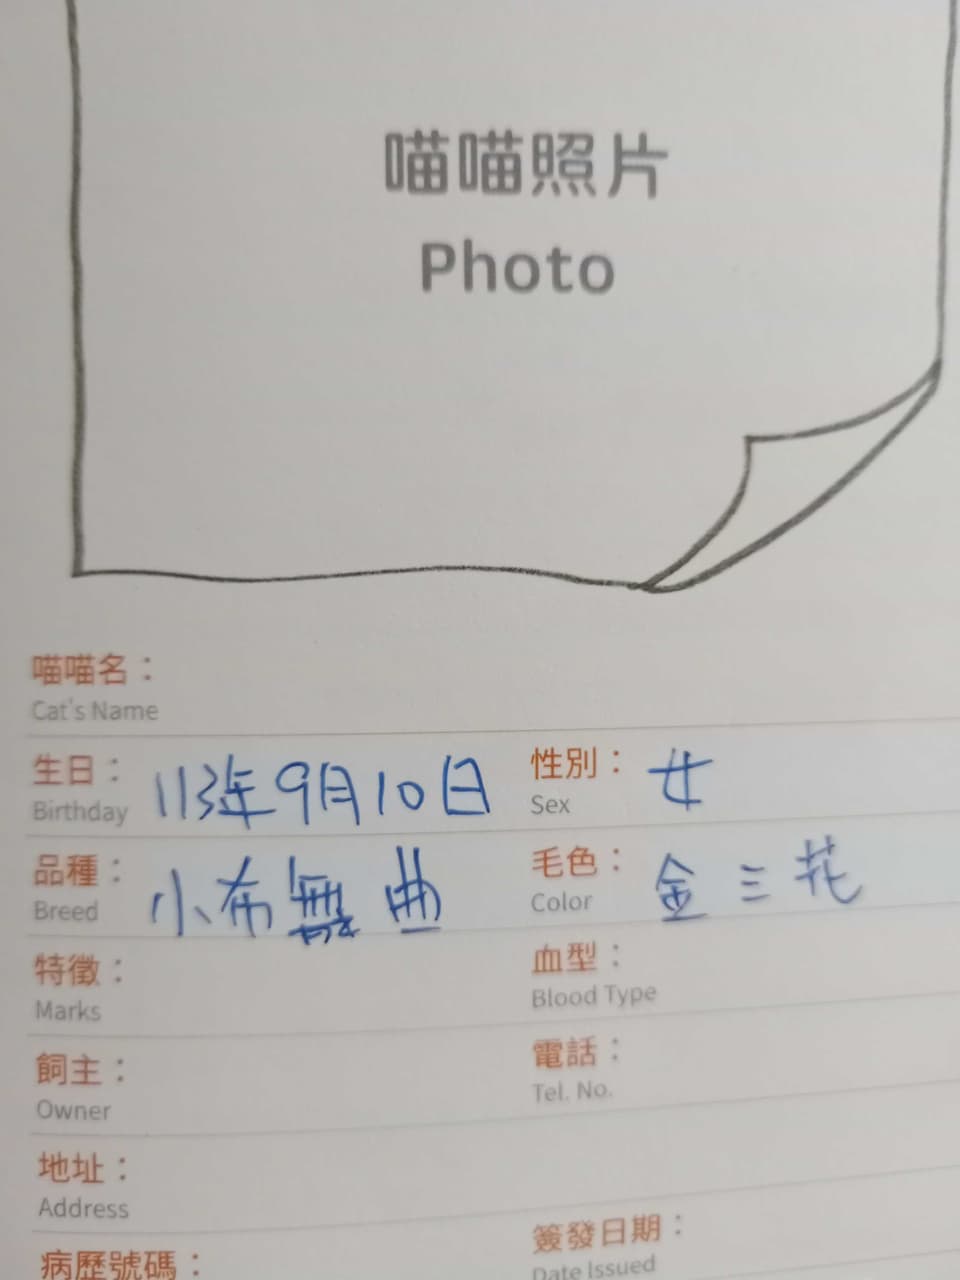 喵喵照片
Photo
喵喵名：
Cat's Name
生日： 113年9月10日 性別： 女
Birthday Sex
品種： 小布無曲 毛色： 金三花
Breed Color
特徵： 血型：
Marks Blood Type
飼主： 電話：
Owner Tel. No.
地址：
Address
病歷號碼： 簽發日期：
Date Issued